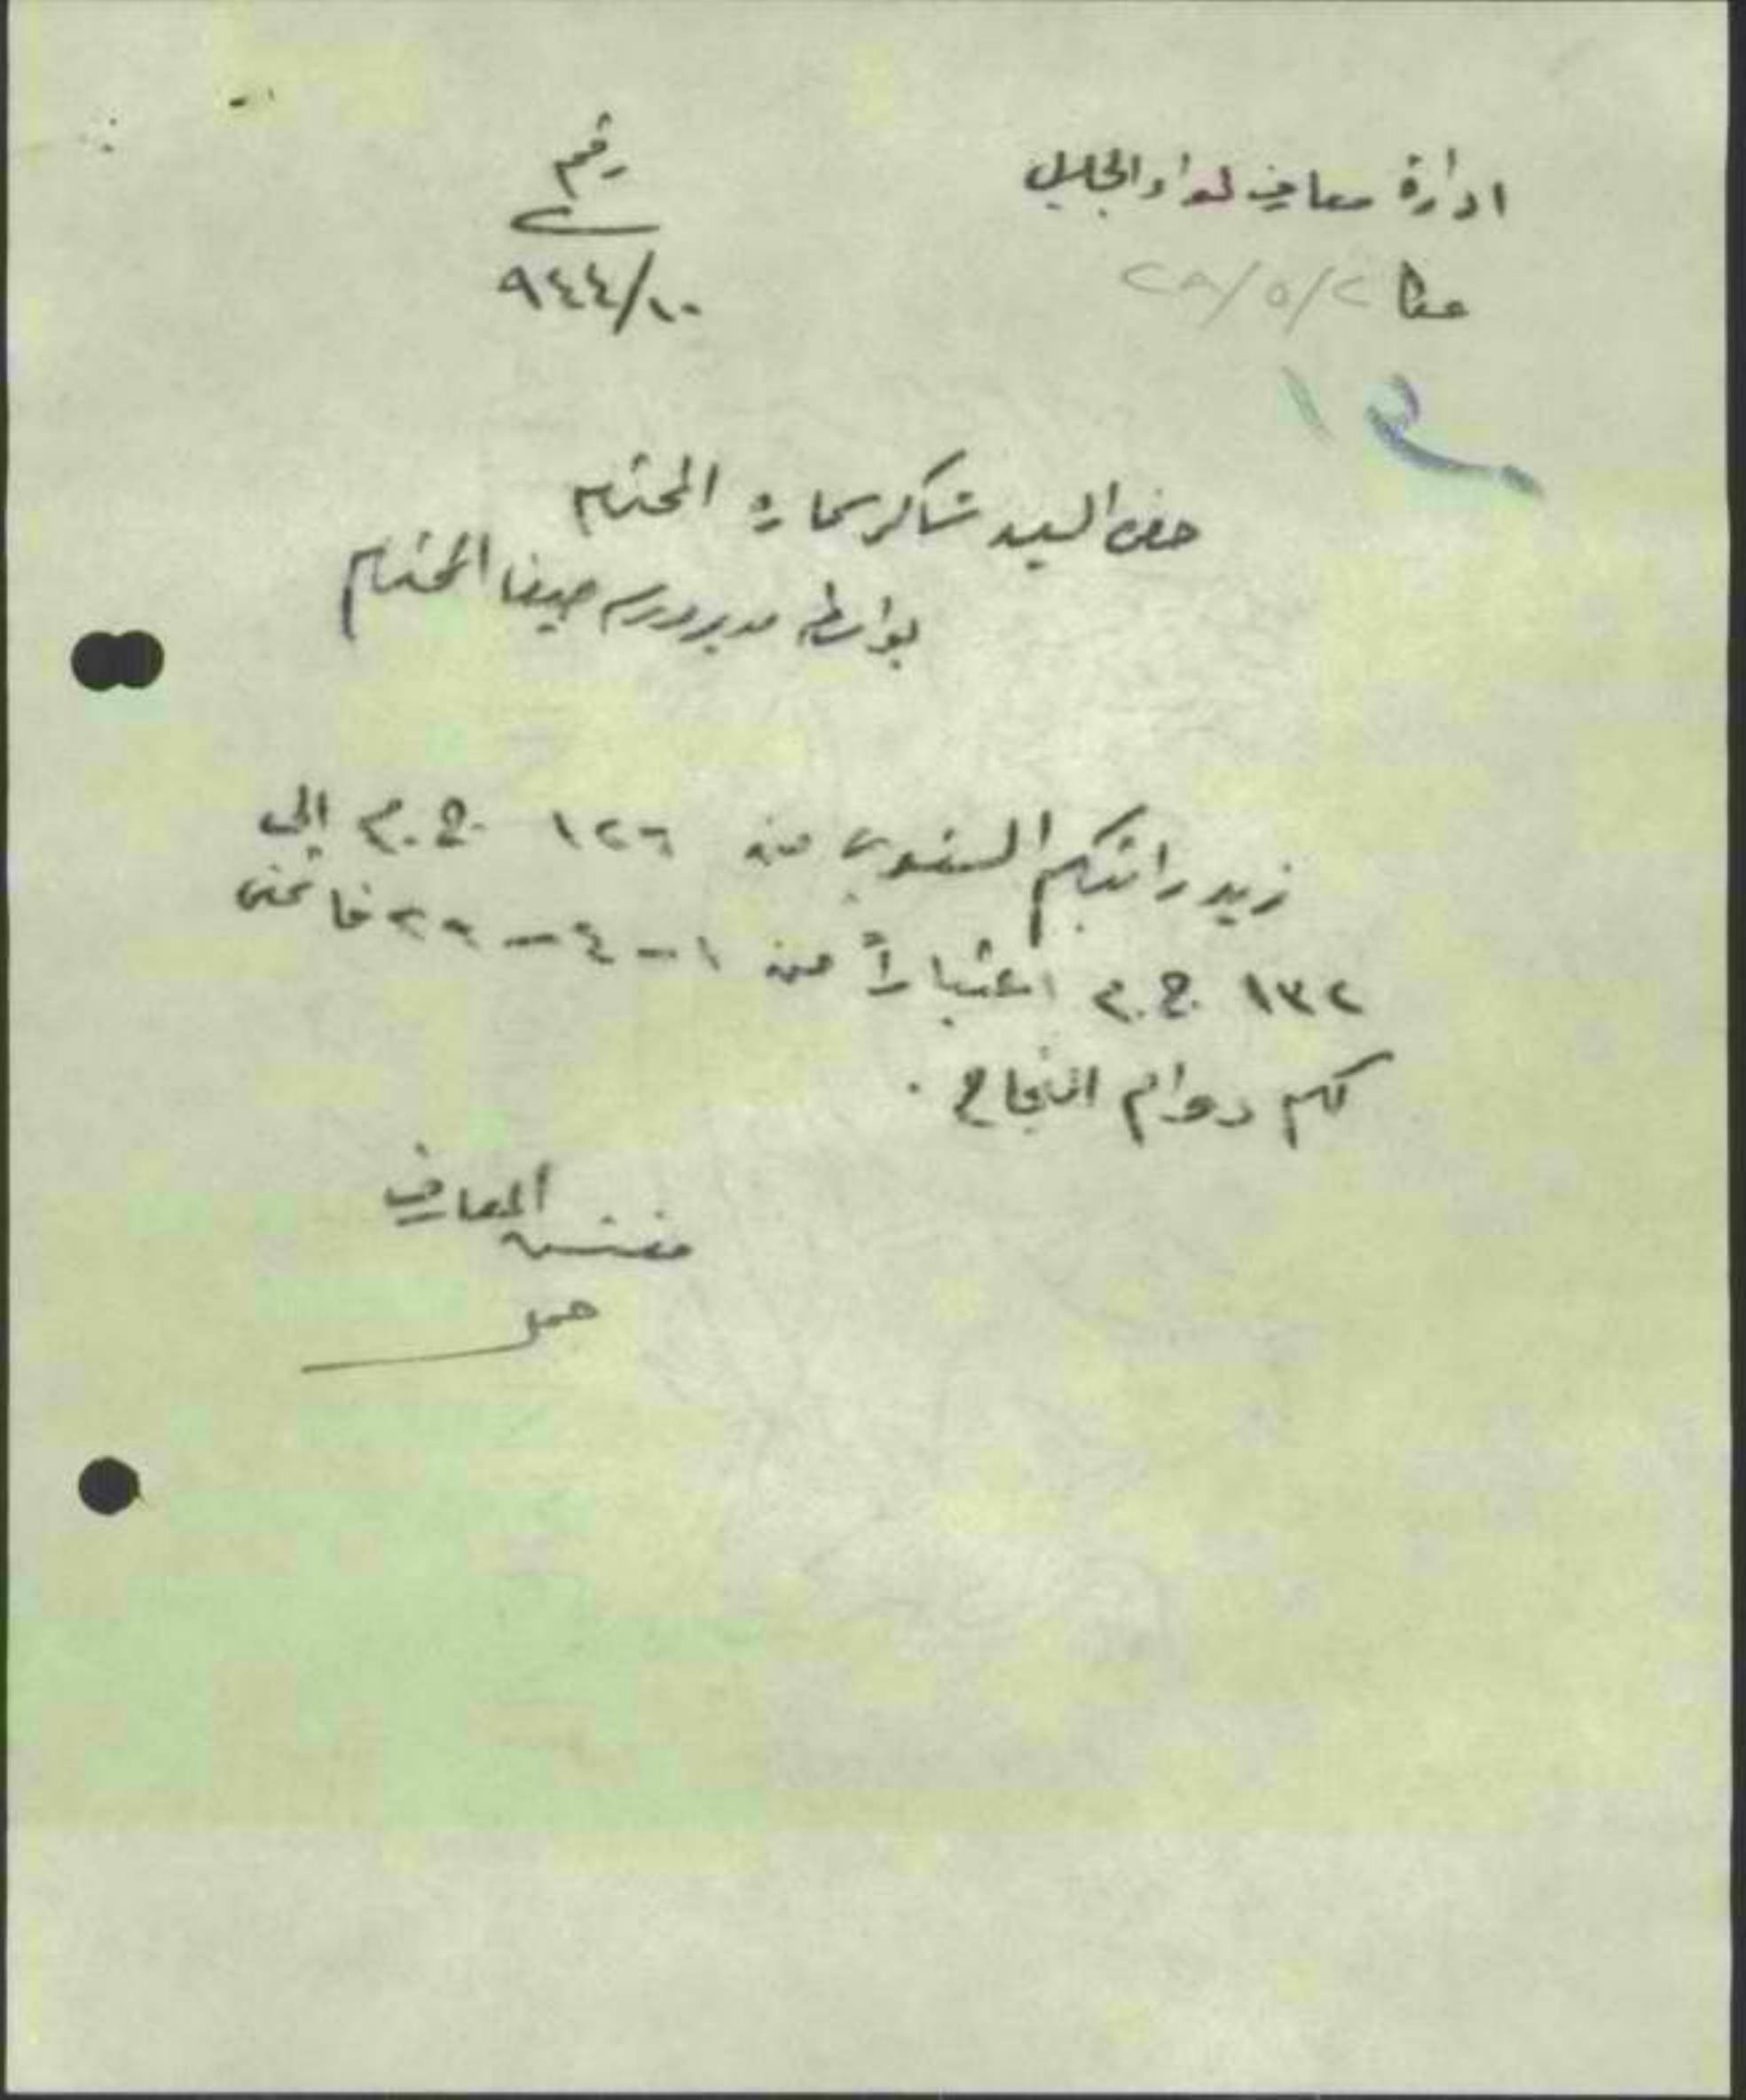 ادارة معارف لواء الجليل
رقم
عكا ٢٨/٥/٢
٩٤٤/١٠
حضرة السيد شاكر سمارة المحترم
بواسطة مدير مدرسة حيفا المحترم
زيد راتبكم السنوي من ١٢٦ ج.م الى
١٣٢ ج.م اعتباراً من ١-٤-٢٨ فاتمنى
لكم دوام النجاح.
مفتش المعارف